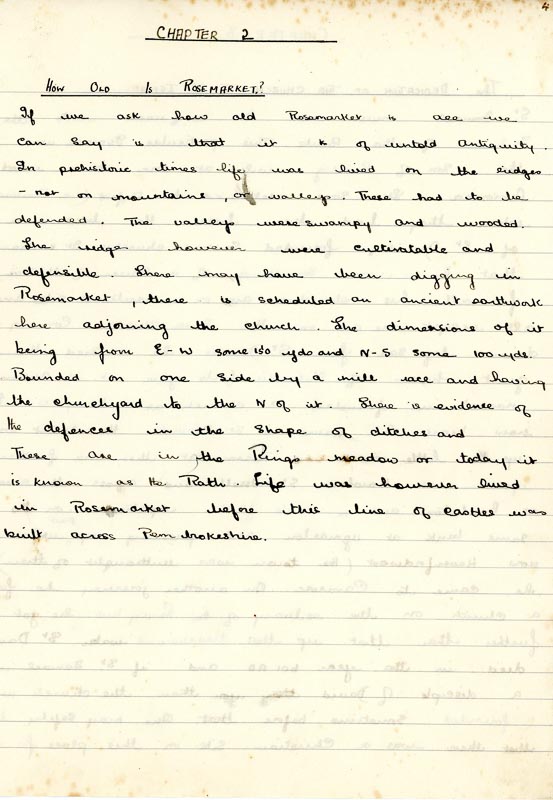 4
CHAPTER 2
HOW OLD IS ROSEMARKET?
If we ask how old Rosemarket is all we
can say is that it is of untold Antiquity.
In prehistoric times life was lived on the ridges
- not on mountains, or valleys. These had to be
defended. The valleys were swampy and wooded.
The ridges however were cultivatable and
defensible. There may have been digging in
Rosemarket, there is scheduled an ancient earthwork
here adjoining the church. The dimensions of it
being from E-W some 150 yds and N-S some 100 yds.
Bounded on one side by a mill race and having
the churchyard to the N of it. There is evidence of
the defences in the shape of ditches and
These are in the Rings meadow or today it
is known as the Rath. Life was however lived
in Rosemarket before this line of castles was
built across Pembrokeshire.